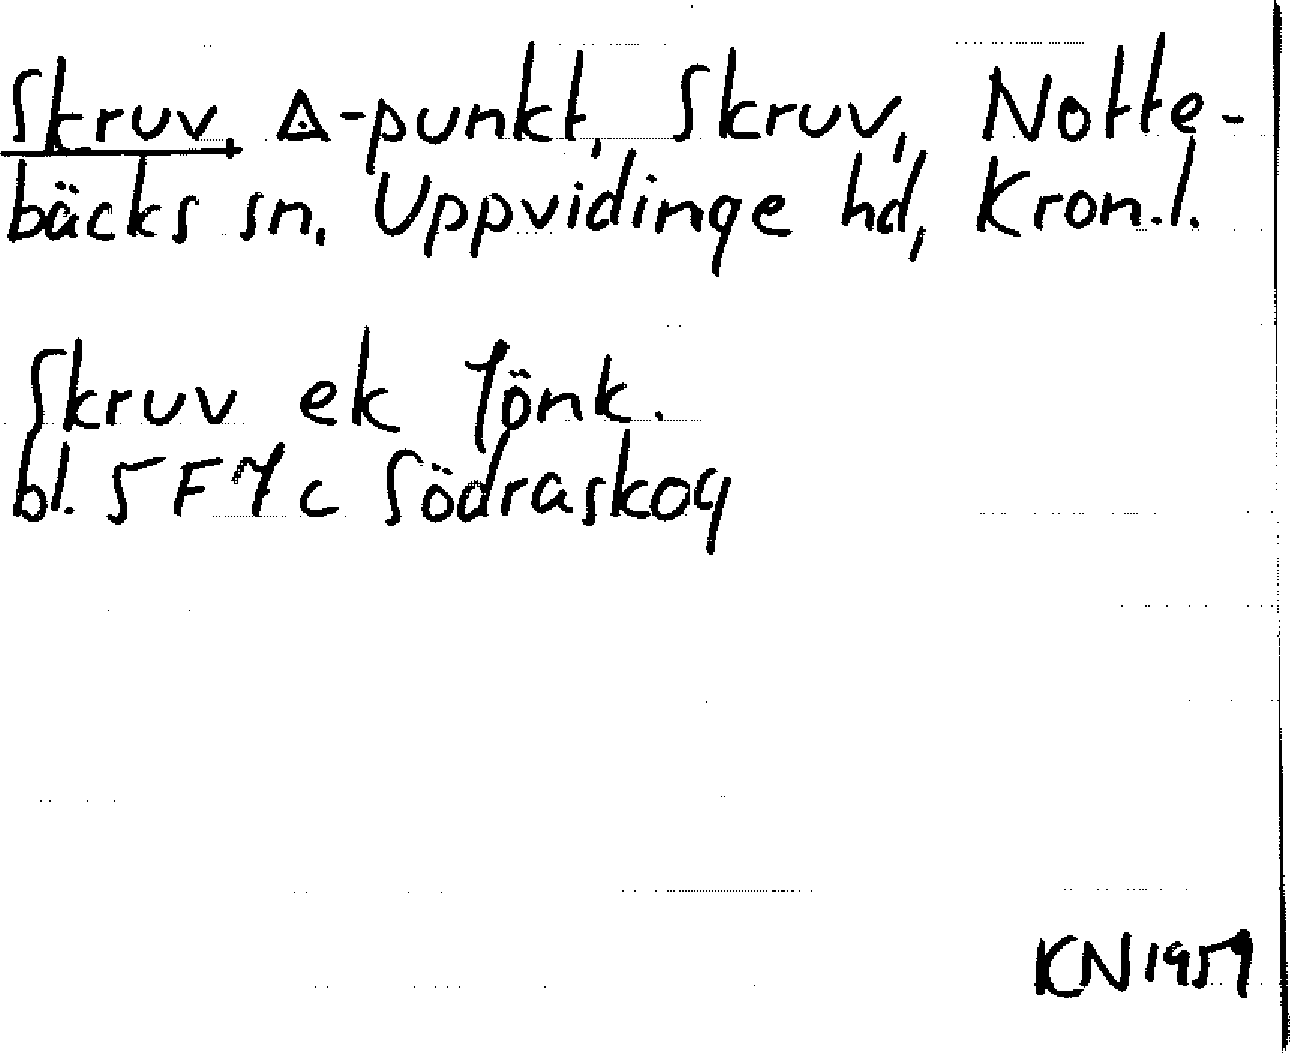 Skruv, △-punkt, Skruv, Notte-
bäcks sn. Uppvidinge hd, Kron.l.
Skruv ek Jönk.
bl. 5F7c Södraskog
KN 1957